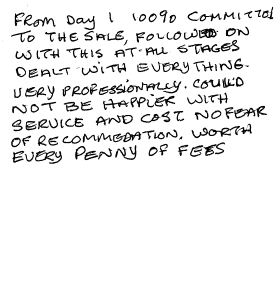 FROM DAY 1 100% COMMITTED
TO THE SALE, FOLLOWED ON
WITH THIS AT ALL STAGES
DEALT WITH EVERYTHING.
VERY PROFESSIONALLY. COULD
NOT BE HAPPIER WITH
SERVICE AND COST NO FEAR
OF RECOMMEDATION, WORTH
EVERY PENNY OF FEES